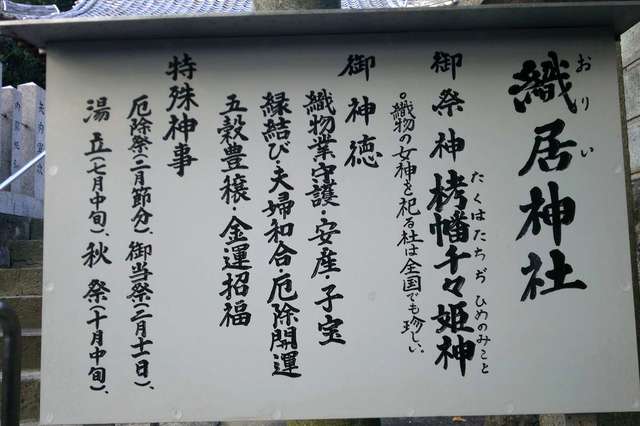 織居神社
おりい
御祭神 栲幡千々姫神
たくはたちぢひめのみこと
○織物の女神を祀る社は全国でも珍しい。
御神徳
織物業守護・安産・子宝
縁結び・夫婦和合・厄除開運
五穀豊穣・金運招福
特殊神事
厄除祭(二月節分)、御当祭(二月十一日)、
湯立(七月中旬)、秋祭(十月中旬)、